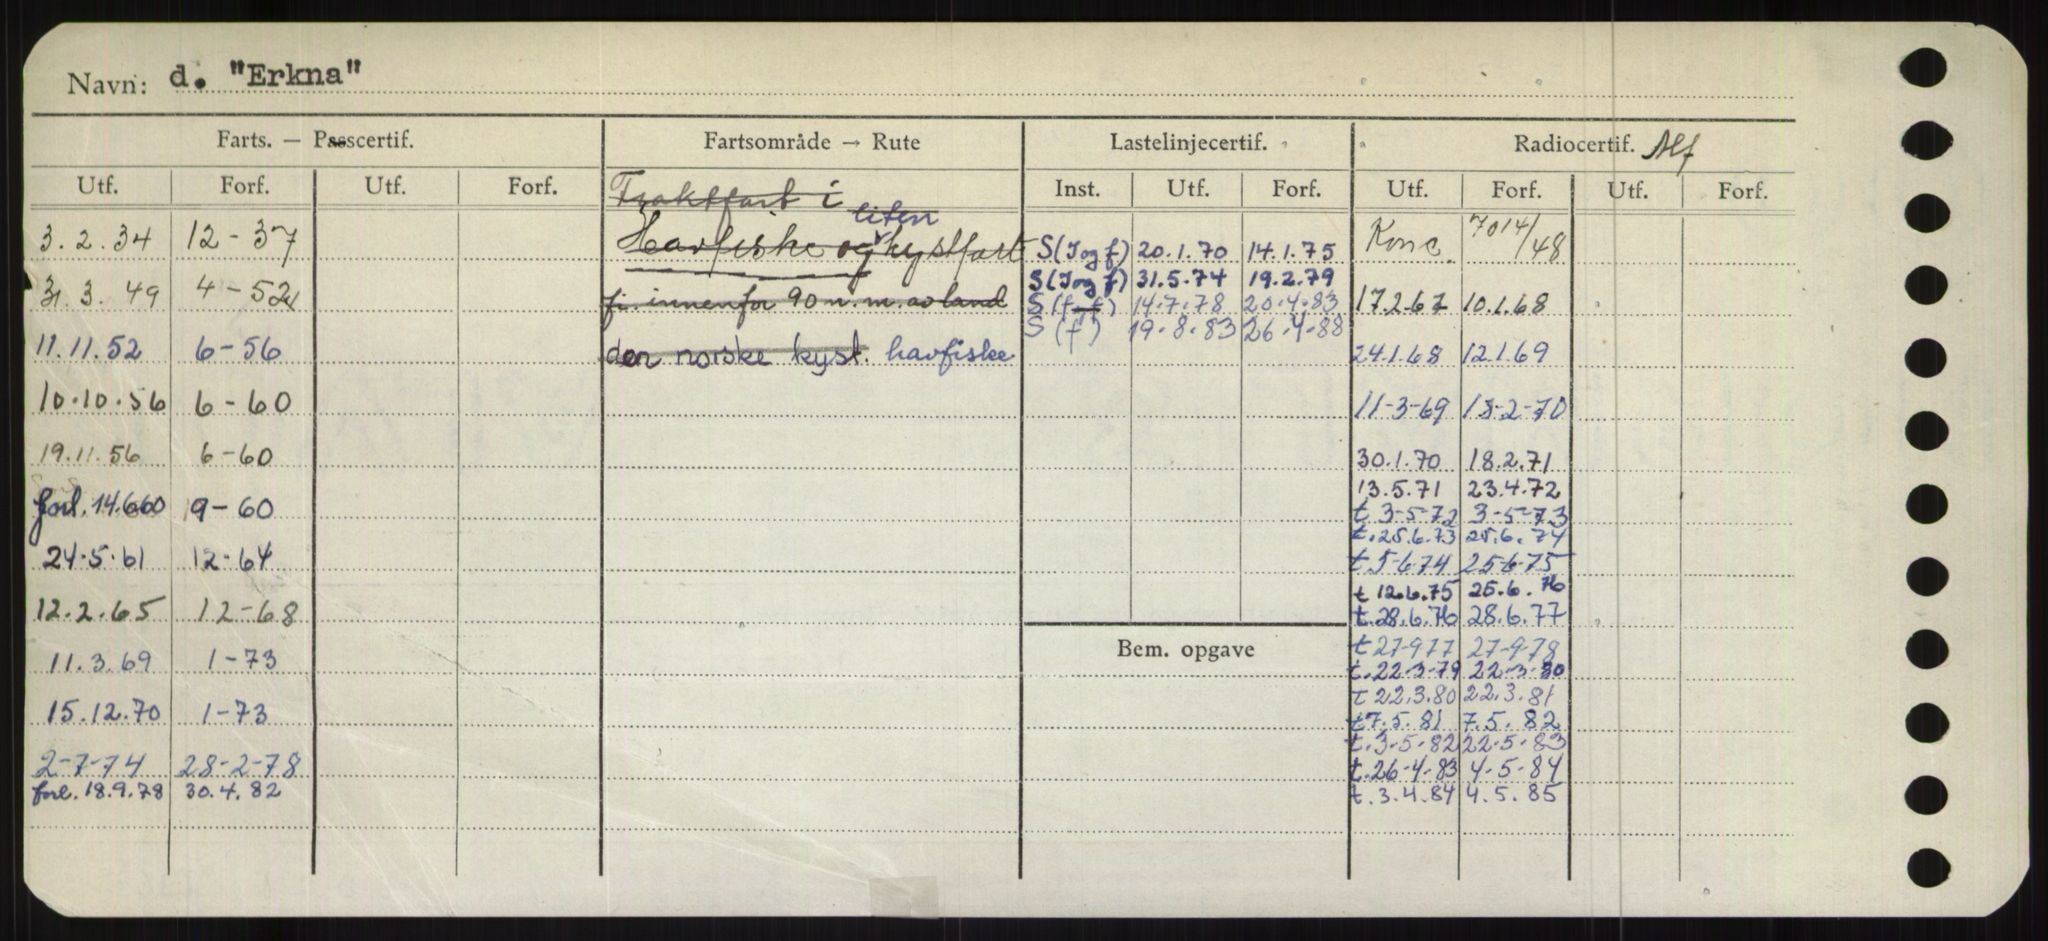 Navn: d. "Erkna"
Farts. — Passcertif. Fartsområde → Rute Lastelinjecertif. Radiocertif. Alf
Utf. Forf. Utf. Forf. Inst. Utf. Forf. Utf. Forf. Utf. Forf.
Fraktfart i
liten
Havfiske og kystfart
fi. innenfor 90 n. m. av land
den norske kyst. havfiske
3.2.34 12-37
31.3.49 4-52
11.11.52 6-56
10.10.56 6-60
19.11.56 6-60
forl. 14.6.60 9-60
24.5.61 12-64
12.2.65 12-68
11.3.69 1-73
15.12.70 1-73
2-7-74 28-2-78
forl. 18.9.78 30.4.82
S (I og f) 20.1.70 14.1.75
S (I og f) 31.5.74 19.2.79
S (f f) 14.7.78 20.4.83
S (f) 19.8.83 26.4.88
Bem. opgave
Konc. 7014/48
17.2.67 10.1.68
24.1.68 12.1.69
11-3-69 18-2-70
30.1.70 18.2.71
13.5.71 23.4.72
t 3-5-72 3-5-73
t. 25.6.73 25.6.74
t 5-6-74 25-6-75
t 12.6.75 25.6.76
t. 28.6.76 28.6.77
t 27-9-77 27-9-78
t. 22-3-79 22-3-80
t 22.3.80 22.3.81
t 7.5.81 7.5.82
t. 3-5-82 22-5-83
t. 26-4-83 4-5-84
t. 3.4.84 4.5.85